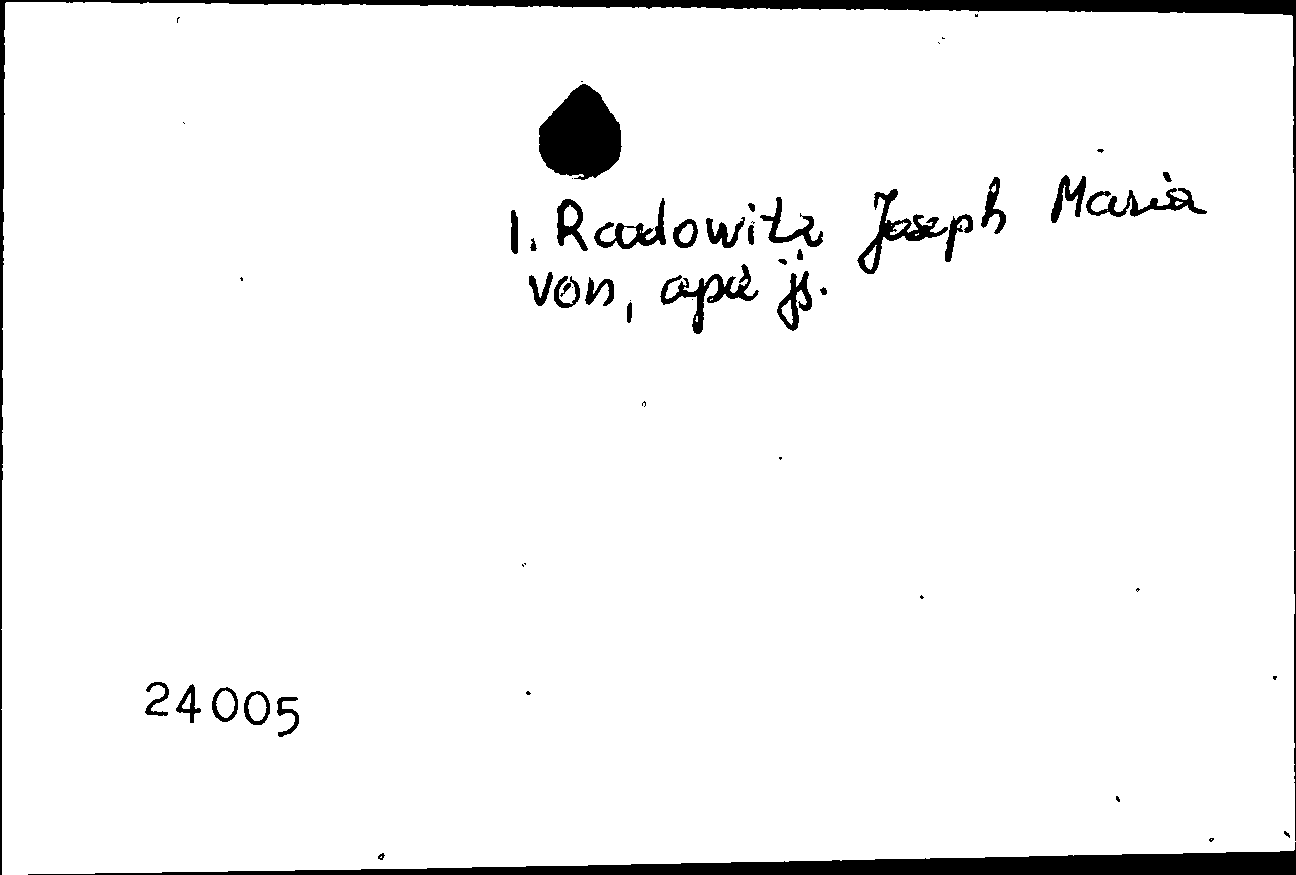 1. Radowitz Joseph Maria
von, apa is.
24005